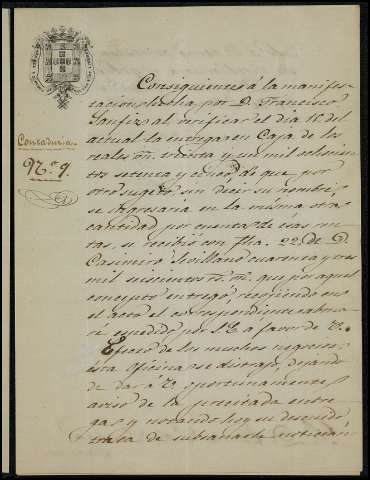 Contaduria
Nº 9.
Consiguiente á la manifes-
tacion hecha por D. Francisco
al verificar el dia 18 del
actual la entrega en Caja de los
reales vn. treinta y un mil ochocien-
tos setenta y cinco, de que por
otro sugeto, sin decir su nombre,
se ingresaria en la misma otra
cantidad por cuenta de esas ren-
tas, se recibió con fha. 22, de D.
Casimiro Sevillano cuarenta y tres
mil seiscientos rs. vn. que por aquel
concepto entregó, recojiendo en
el acto el correspondiente abona-
ré espedido por S.E. á favor de V.
Efecto de los muchos negocios,
esta oficina se distrajo, dejando
de dar á V. oportunamente
aviso de la precitada entre-
ga, y notando hoy su descuido
trata de subsanarle noticián